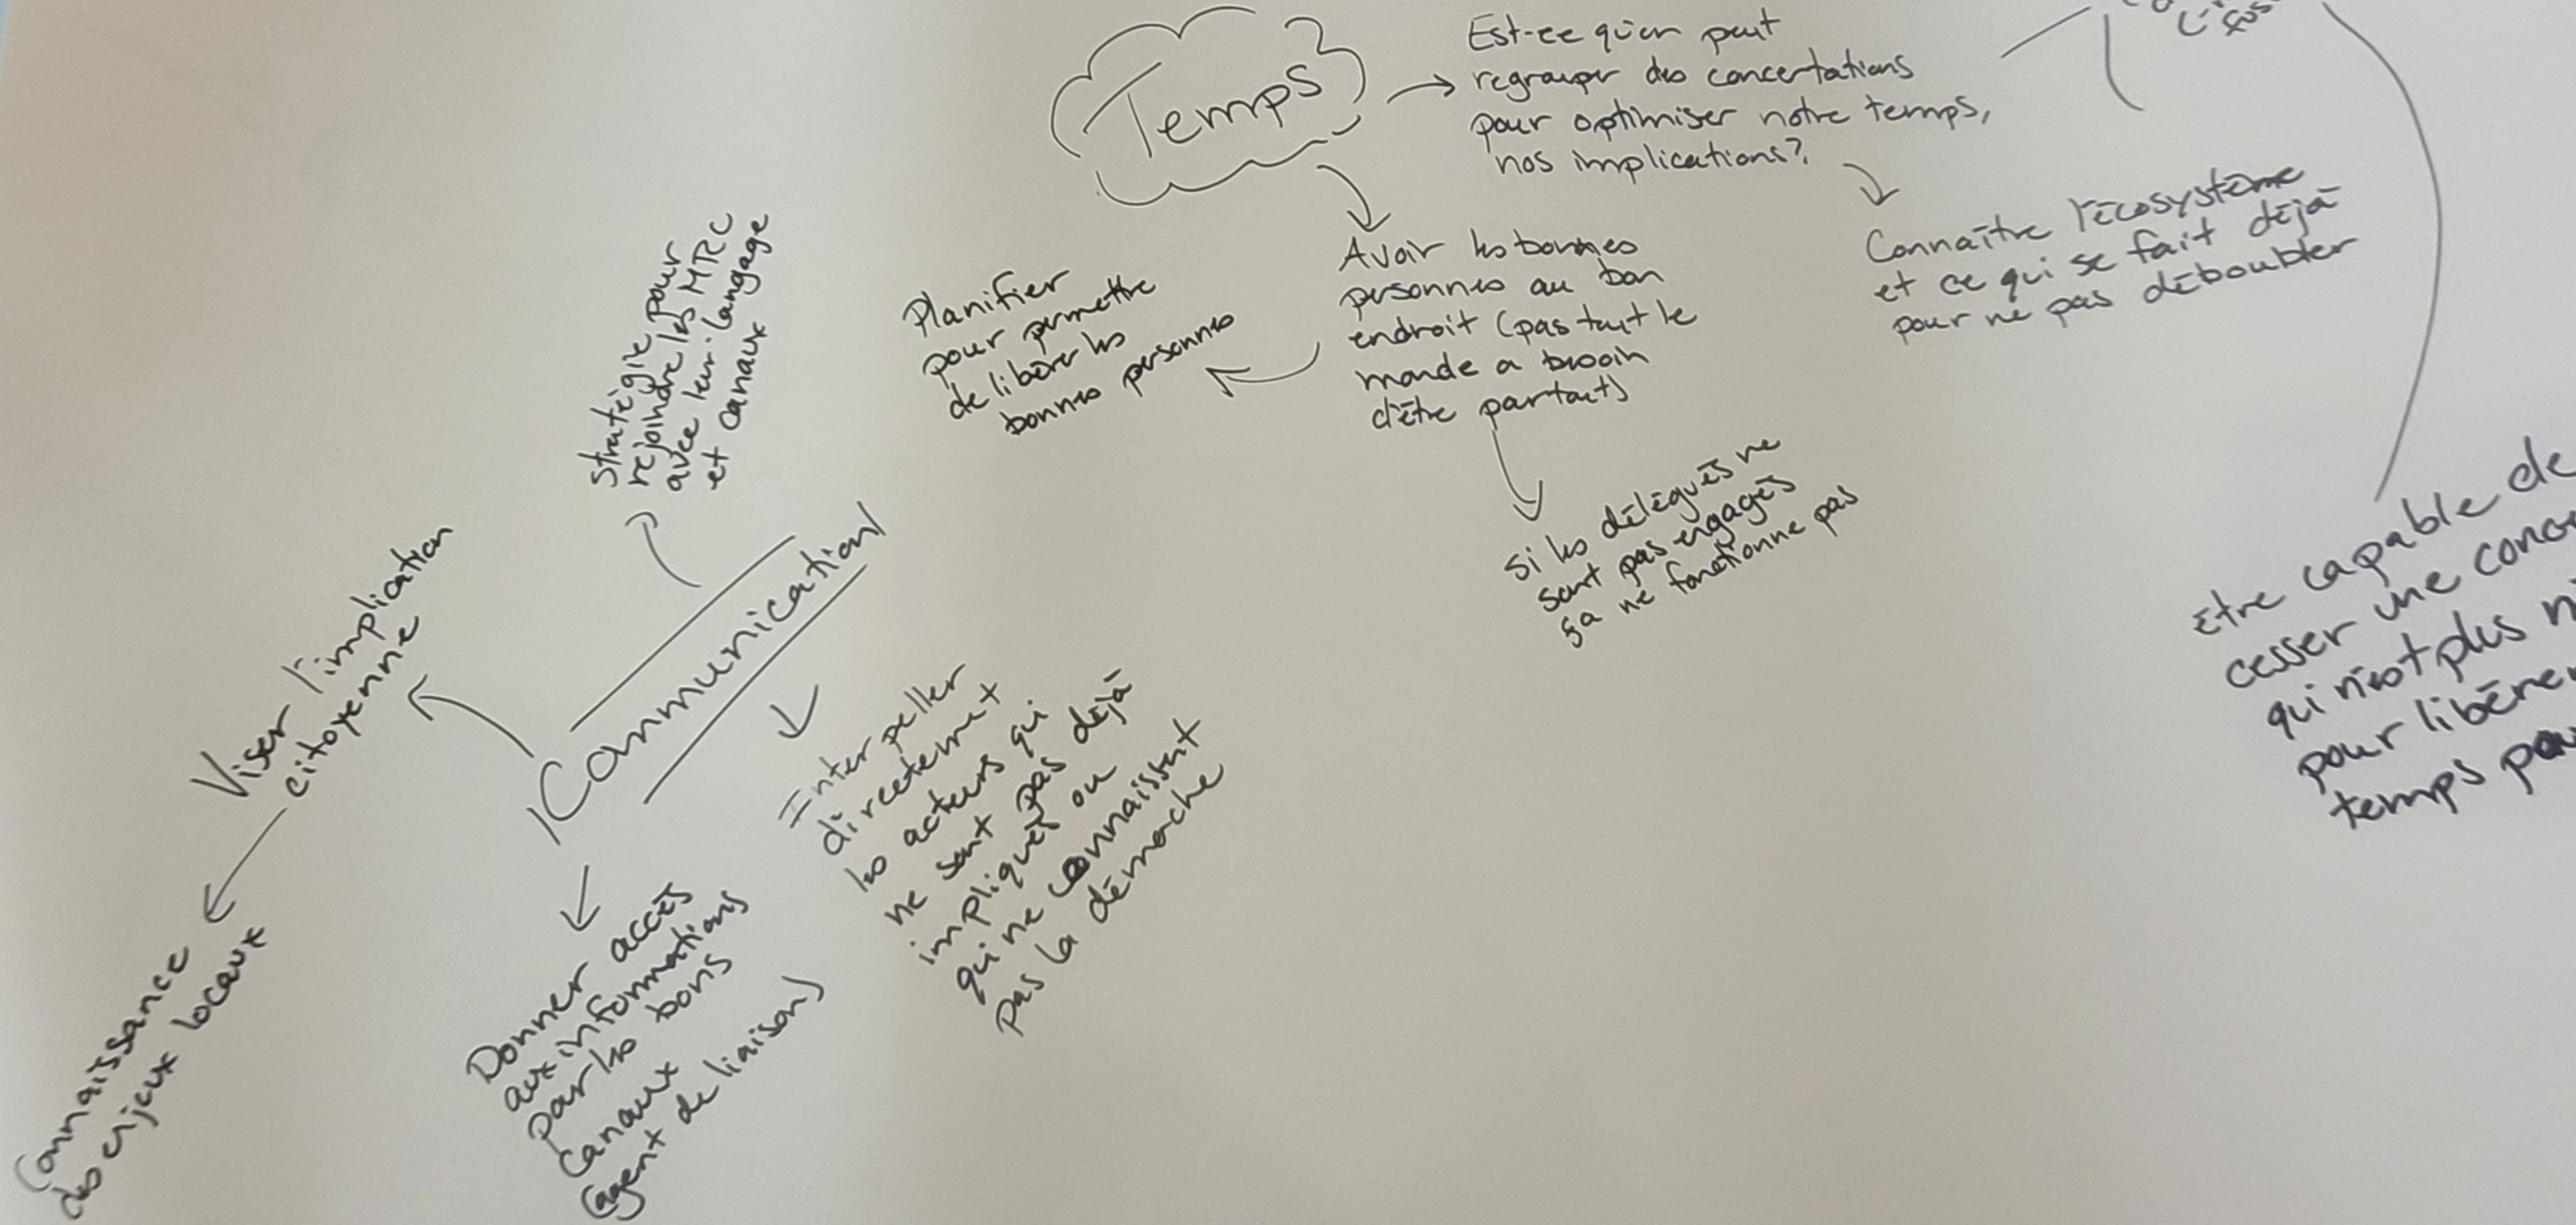 Temps
Est-ce qu'on peut
regrouper des concertations
pour optimiser notre temps,
nos implications?
Connaître l'écosystème
et ce qui se fait déjà
pour ne pas déboubler
Avoir les bonnes
personnes au bon
endroit (pas tout le
monde a besoin
d'être partout)
Planifier
pour permettre
de libérer les
bonnes personnes
si les délégués ne
sont pas engagés
ça ne fonctionne pas
être capable de
cesser une
qui n'est plus
pour libérer
temps
Communication
stratégie pour
rejoindre les MRC
avec leur langage
et canaux
Viser l'implication
citoyenne
Connaissance
des enjeux locaux
Donner accès
aux informations
par les bons
canaux
(agent de liaison)
Interpeller
directement
les acteurs qui
ne sont pas déjà
impliqués ou
qui ne connaissent
pas la démarche